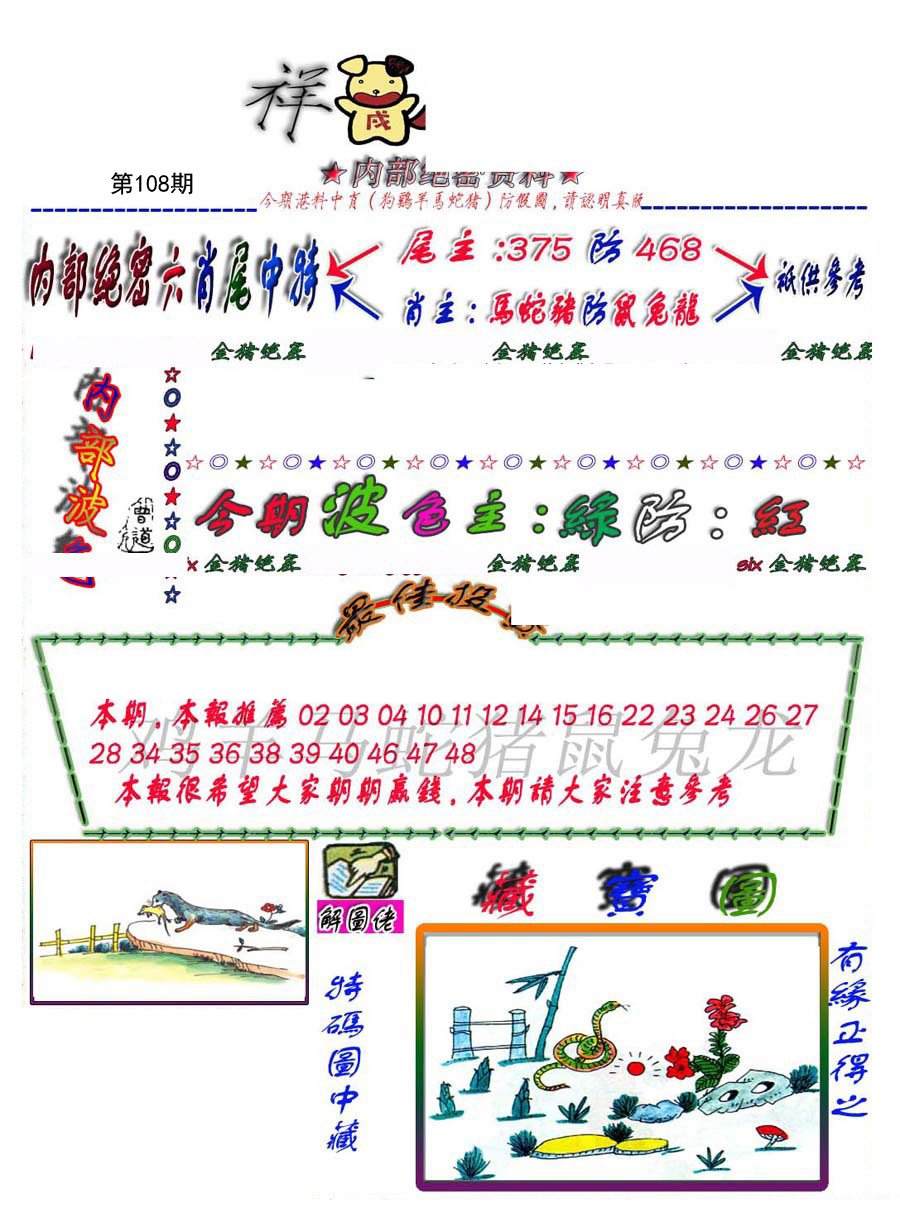 祥
戌
★内部绝密资料★
第108期
今期港料中肖（狗鷄羊馬蛇猪）防假圖，請認明真版
内部绝密六肖尾中特
尾主:375防468
肖主：馬蛇豬防鼠兔龍
祇供參考
金猪绝密 金猪绝密 金猪绝密
内部波色
曾道
今期波色主：綠防：紅
x 金猪绝密 金猪绝密 six 金猪绝密
最佳投
鸡羊马蛇猪鼠兔龙
本期，本報推薦 02 03 04 10 11 12 14 15 16 22 23 24 26 27
28 34 35 36 38 39 40 46 47 48
本報很希望大家期期贏錢，本期請大家注意參考
解圖佬
藏寶圖
特碼圖中藏
有緣正得之